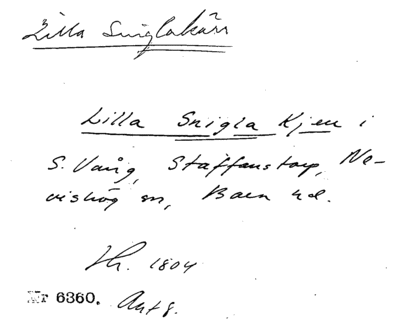 Lilla Sniglakärr
Lilla Snigla Kjerr i
S. Vång, Staffanstorp, Ne-
vishög sn, Bara hd.
Hr. 1804
Nr 6360. Antg.